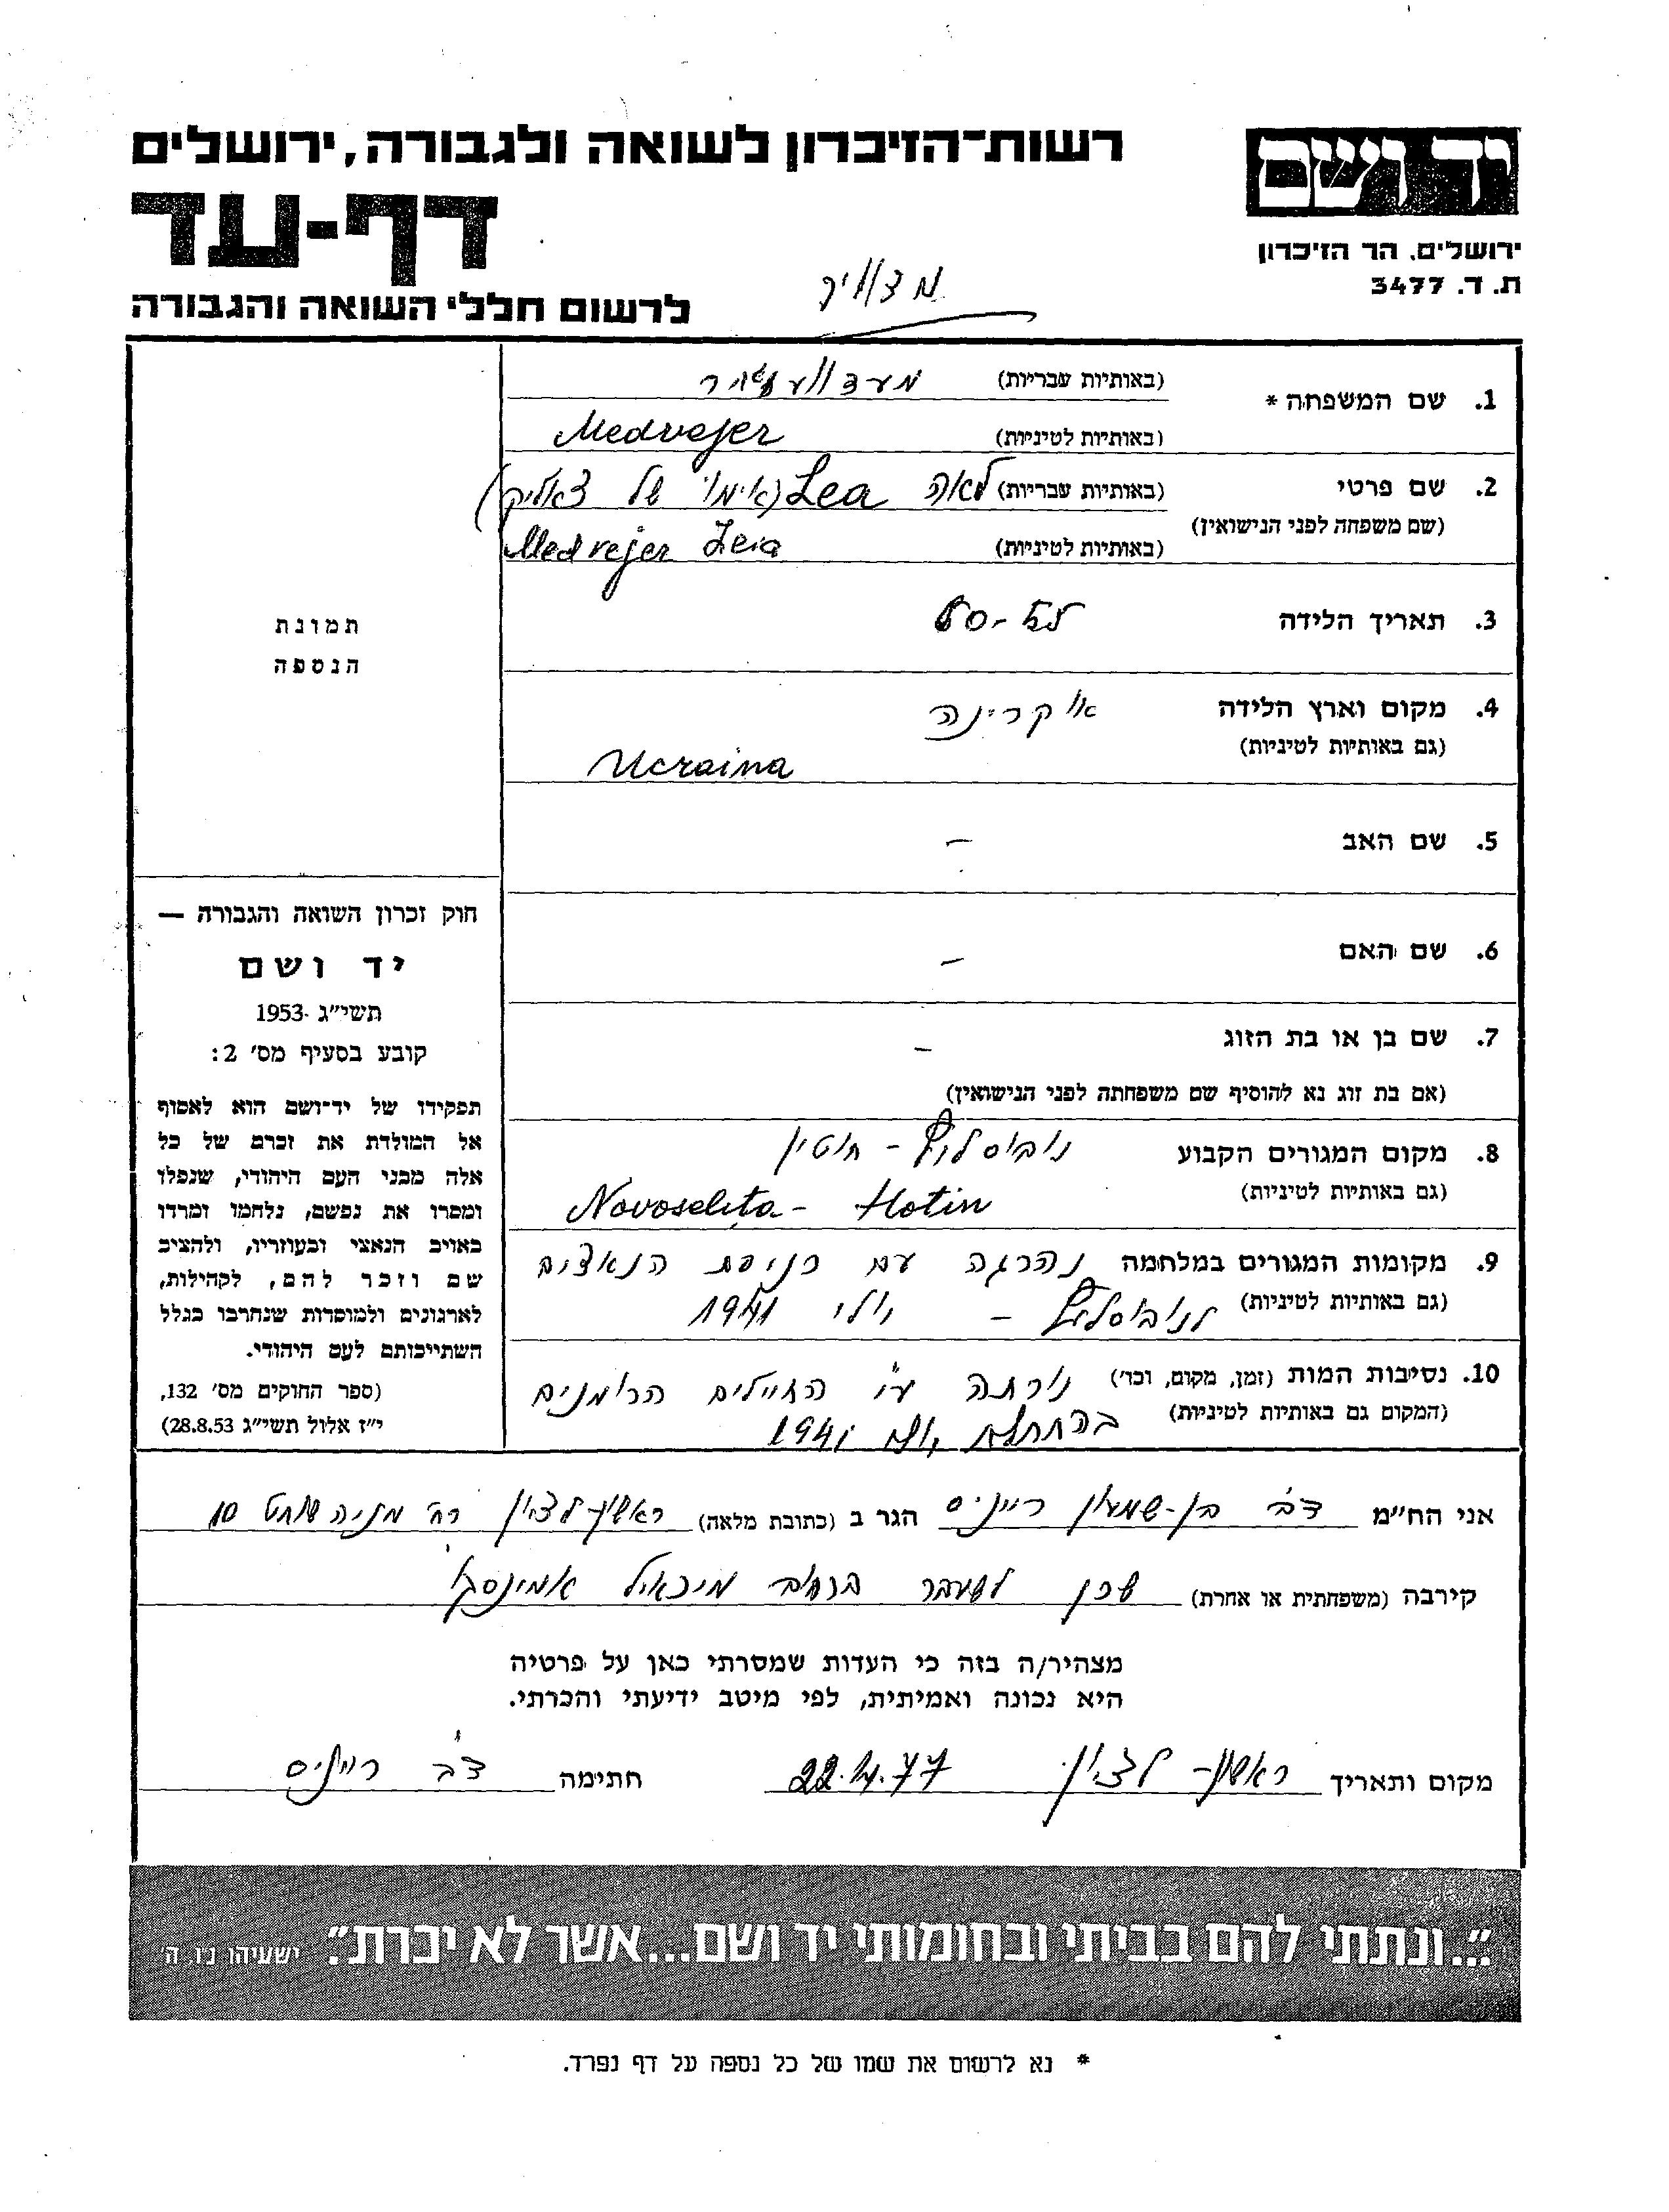 רשות-הזיכרון לשואה ולגבורה, ירושלים
יד ושם
דף-עד
ירושלים, הר הזיכרון
ת. ד. 3477
לרשום חללי השואה והגבורה
1. שם המשפחה *
(באותיות עבריות)
(באותיות לטיניות) Medvejer
2. שם פרטי (באותיות עבריות) לאה Lea (אימו של צאליק)
(שם משפחה לפני הנישואין)
(באותיות לטיניות) Medvejer Leia
3. תאריך הלידה
4. מקום וארץ הלידה אוקרינה
(גם באותיות לטיניות) Ucraina
5. שם האב –
6. שם האם –
7. שם בן או בת הזוג –
(אם בת זוג נא להוסיף שם משפחתה לפני הנישואין)
8. מקום המגורים הקבוע נובוסליץ - חוטין
(גם באותיות לטיניות) Novoselita - Hotin
9. מקומות המגורים במלחמה נהרגה עם כניסת הנאצים
(גם באותיות לטיניות) לנובוסליץ – יולי 1941
10. נסיבות המות (זמן, מקום, וכד') נורתה ע"י החיילים הרומנים
(המקום גם באותיות לטיניות) בהתחלת יולי 1941
תמונת
הנספה
חוק זכרון השואה והגבורה —
יד ושם
תשי"ג -1953
קובע בסעיף מס' 2:
תפקידו של יד-ושם הוא לאסוף
אל המולדת את זכרם של כל
אלה מבני העם היהודי, שנפלו
ומסרו את נפשם, נלחמו ומרדו
באויב הנאצי ובעוזריו, ולהציב
שם וזכר להם, לקהילות,
לארגונים ולמוסדות שנחרבו בגלל
השתייכותם לעם היהודי.
(ספר החוקים מס' 132,
י"ז אלול תשי"ג 28.8.53)
אני הח"מ דב בן-שמעון ריינס הגר ב (כתובת מלאה) ראשון-לצion רח' מניה שוחט 10
קירבה (משפחתית או אחרת) שכן לשעבר ברחוב מיכאיל אמינסקו
מצהיר/ה בזה כי העדות שמסרתי כאן על פרטיה
היא נכונה ואמיתית, לפי מיטב ידיעתי והכרתי.
מקום ותאריך ראשון-לציון חתימה דב ריינס
"...ונתתי להם בביתי ובחומותי יד ושם...אשר לא יכרת". ישעיהו נ"ו, ה'
* נא לרשום את שמו של כל נספה על דף נפרד.